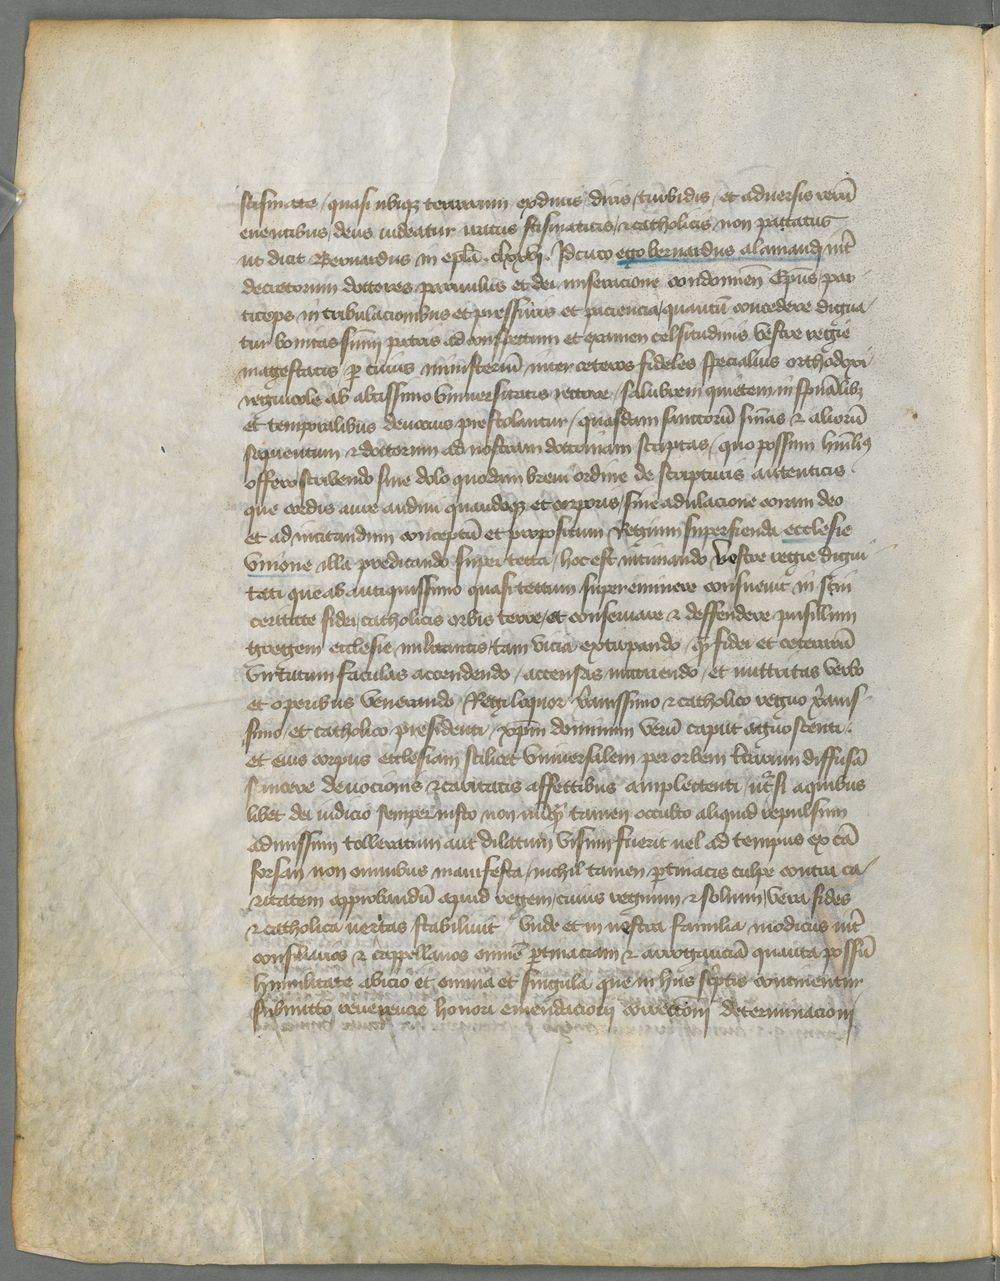 scismate / quasi ubiqȝ terrarum ex duris / diris / turbidis / et adversis rerū
eventibus / deus videatur iratus scismaticis / ⁊ catholicis non paccatus
ut dicit Bernardus in epl̄a . clxxvj . Idcirco ego bernardus alamandj int̄
decretorum doctores parvulus et dei miseracione condomien̄ Ep̄us / par
ticeps in tribulacionibus et pressuris et paciencia / quantū concedere digna /
tur bonitas sūmi patris ad conspectum et examen celsitudinis vestre regie
magestatis p cuius ministeriū inter ceteros fideles specialius orthodoxi
regnicole ab altissimo universitatis rectore / salubrem quietem in spūalibȝ
et temporalibus devocius prestolantur / quasdam sanctorū sn̄ias ⁊ aliorū
sapientum ⁊ doctorum ad nostram doctrinam scriptas / quo possum humil9
offero scribendo sine dolo quodam brevi ordine de scripturis autenticis
que cordis aure audivi quandoqȝ et corporis / sine adulacione coram deo
et ad incitandum conceptū et propositum Regium super fienda ecclesie
unione illa predicando super tecta / hoc est intimando vestre regie digni
tati que ab antiquissimo quasi tectum supereminere consuevit in sin
ceritate fidei / catholicis orbis terre / et conservare ⁊ deffendere pusillum
gregem ecclesie militantis / tam vicia extirpando / q̄ fidei et ceterarū
virtutum faculas accendendo / accensas nutriendo / et nutritas verbo
et operibus venerando / Regi loquor xp̄ianissimo ⁊ catholico regno xp̄ianis
simo / et catholico presidenti / xp̄m dominum verū caput agnoscenti .
et eius corpus ecclesiam scilicet universalem per orbem terrarum diffusā
sincere devocionis ⁊ caritatis affectibus amplectenti / ut si a quibus
libet dei iudicio semper iusto non nūq̄ tamen occulto aliquid repulsum
admissum tolleratum aut dilatum visum fuerit vel ad tempus ex cā
forsan non omnibus manifesta / nichil tamen ptinacis culpe contra ca /
ritatem approbandū apud regem / cuius regnum ⁊ solium / vera fides
⁊ catholica veritas stabilivit / Unde et in vestra familia modicus int̄
consiliarios ⁊ cappellanos omnē ptinaciam ⁊ arroganciā quanta possū
humilitate abicio et omnia et singula que in hijs sc̄ptis continentur
submitto reverencie honori emendacionj correctionj determinacionj